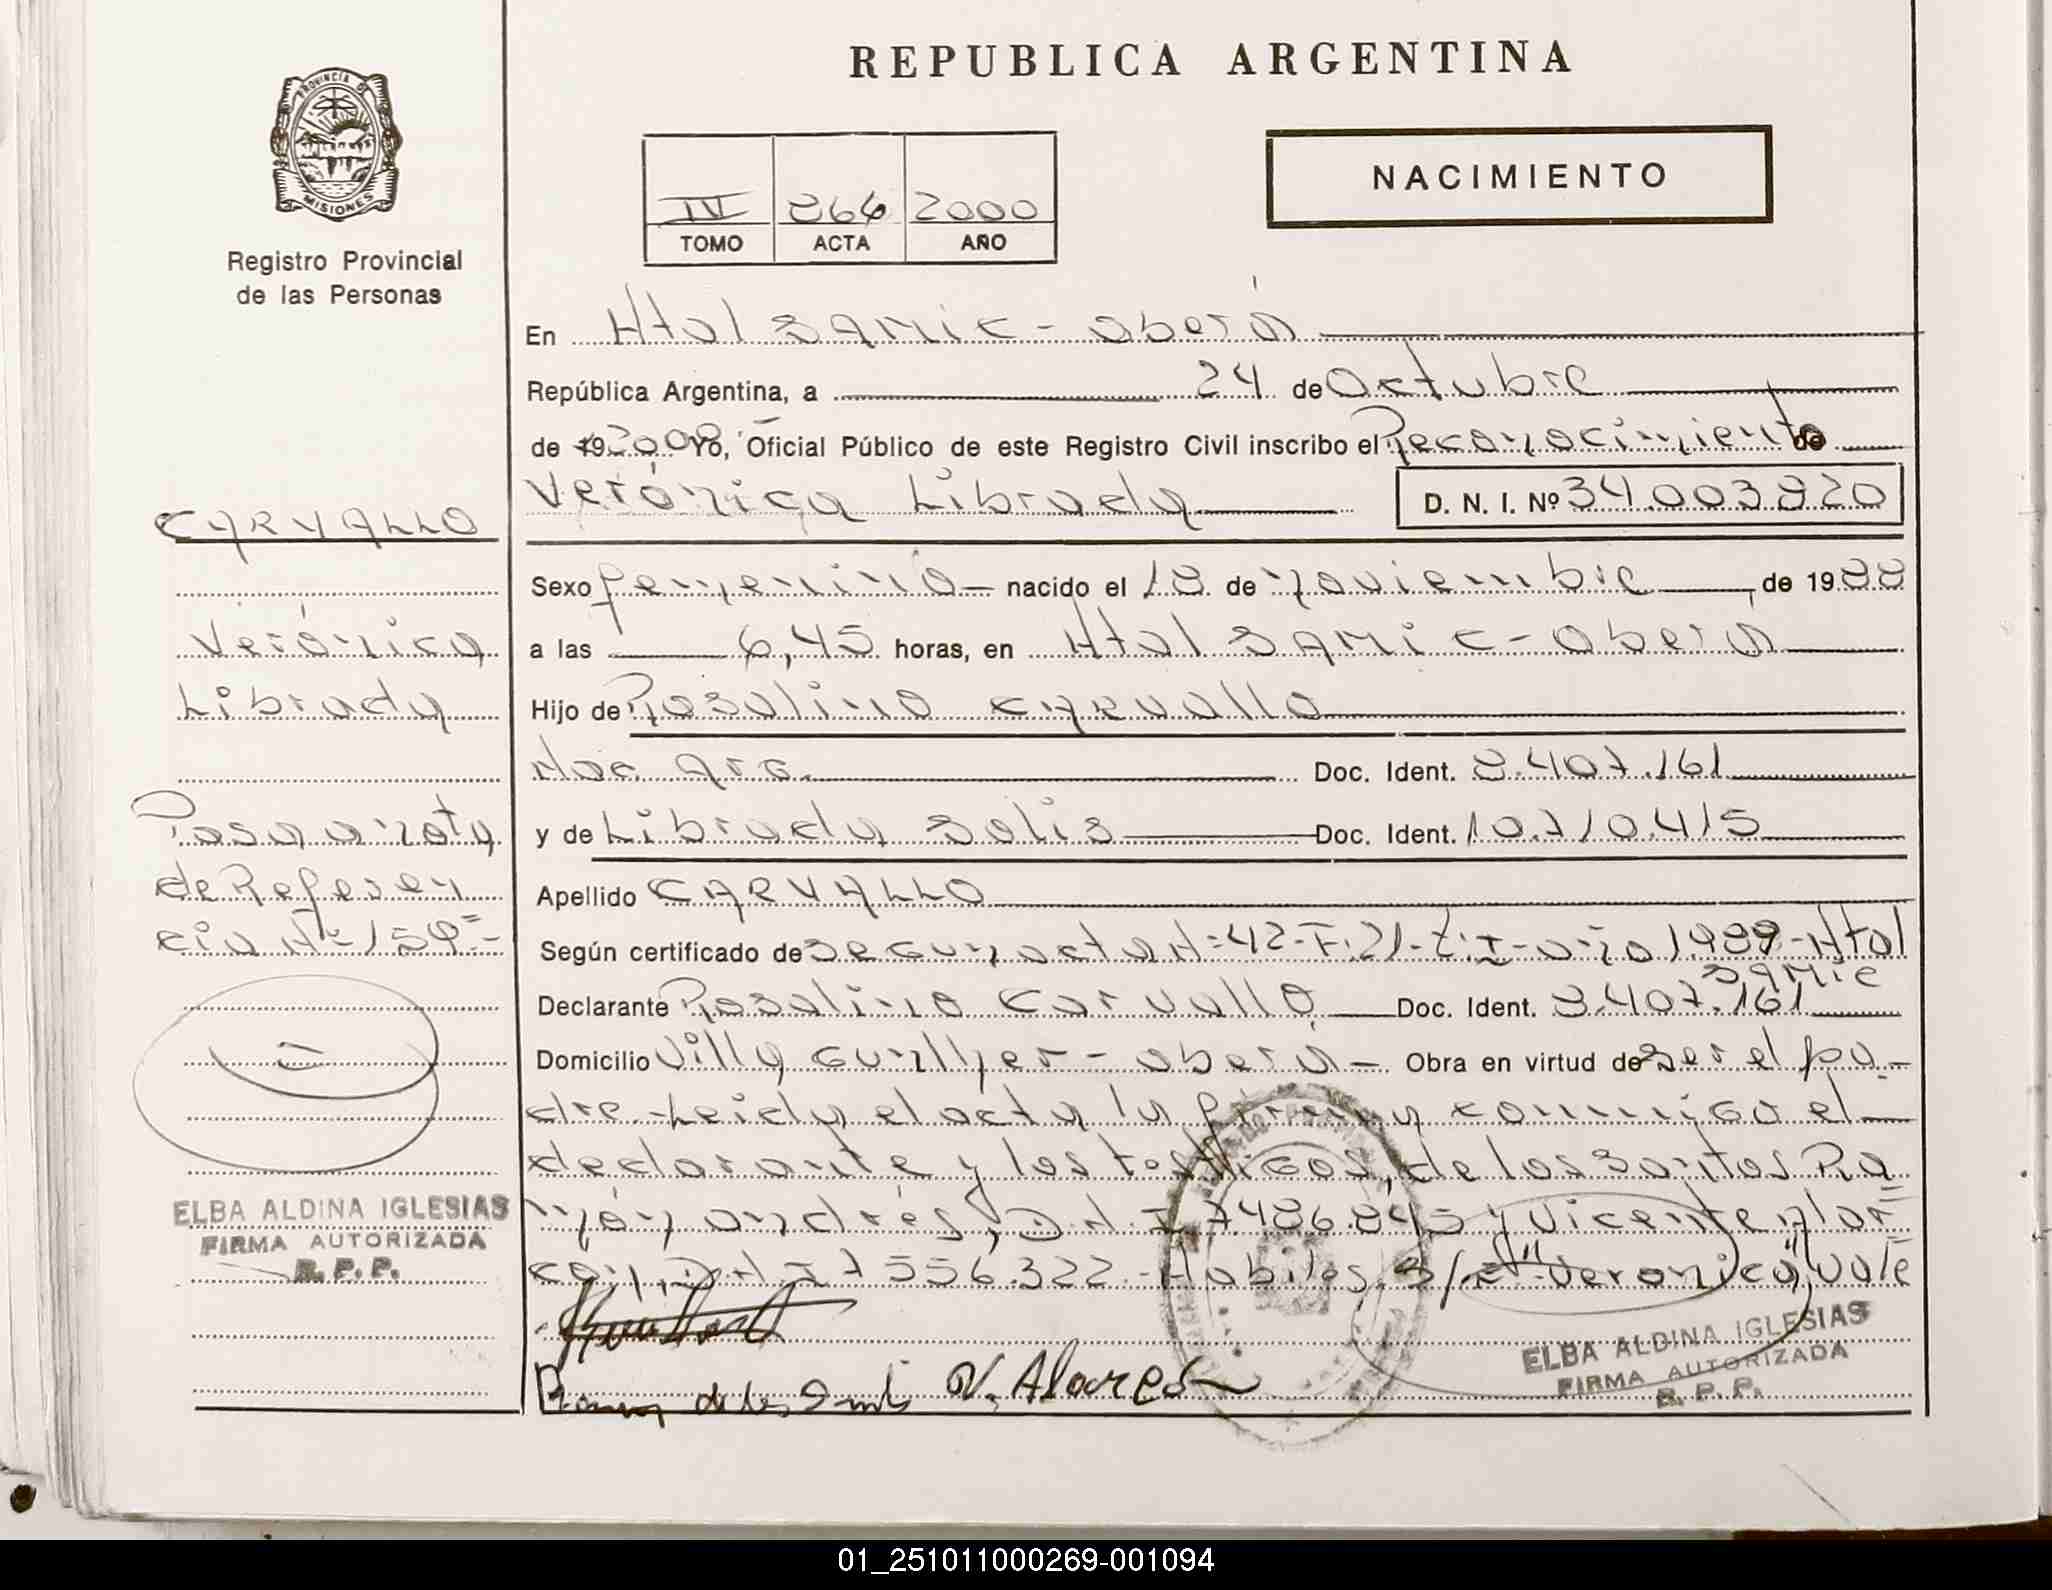 REPUBLICA ARGENTINA
PROVINCIA DE
MISIONES
Registro Provincial
de las Personas
NACIMIENTO
IV 264 2000
TOMO ACTA AÑO
En Htal SAMIC - Oberá
República Argentina, a 24 de Octubre
de 19 2000 Yo, Oficial Público de este Registro Civil inscribo el Reconocimiento de
Verónica Librada D. N. I. Nº 34.003.820
CARVALLO
Verónica
Librada
Pasa a nota
de Referen
cia Nº 159=-
ELBA ALDINA IGLESIAS
FIRMA AUTORIZADA
R. P. P.
Sexo femenino - nacido el 18 de noviembre de 1988
a las 6,45 horas, en Htal SAMIC - Oberá
Hijo de Rosalino CARVALLO
Nac. Arg. Doc. Ident. 8.407.161
y de Librada Solis Doc. Ident. 10.710.415
Apellido CARVALLO
Según certificado de Según acta Nº 42-F:21-t:I-año 1989-Htal
SAMIC
Declarante Rosalino Carvallo Doc. Ident. 8.407.161
Domicilio Villa Gunther - Oberá - Obra en virtud de ser el pa-
dre. Leida el acta la firman conmigo el
declarante y los testigos, de los Santos Ra
món Andrés, D.N.I 7.486.845 y Vicente Alar
cón, D.N.I 7.556.322.- Hábiles. S/R "Verónica", Vale
Ramon de los Santos V. Alarcón
ELBA ALDINA IGLESIAS
FIRMA AUTORIZADA
R. P. P.
01_251011000269-001094